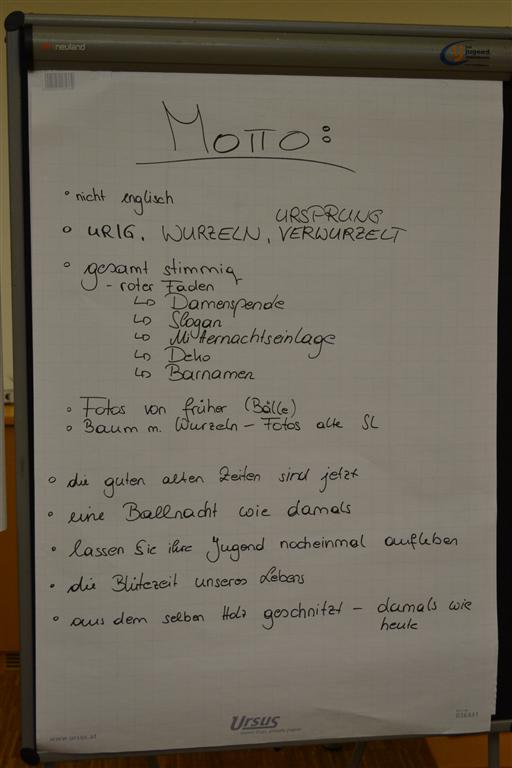 neuland
jugend
MOTTO:
• nicht englisch
URSPRUNG
• URIG, WURZELN, VERWURZELT
• gesamt stimmig
- roter Faden
↳ Damenspende
↳ Slogan
↳ Mitternachtseinlage
↳ Deko
↳ Barnamen
• Fotos von früher (Bälle)
• Baum m. Wurzeln - Fotos alte SL
• die guten alten Zeiten sind jetzt
• eine Ballnacht wie damals
• lassen Sie ihre Jugend nocheinmal aufleben
• die Blütezeit unseres Lebens
• aus dem selben Holz geschnitzt - damals wie
heute
Ursus
www.ursus.at